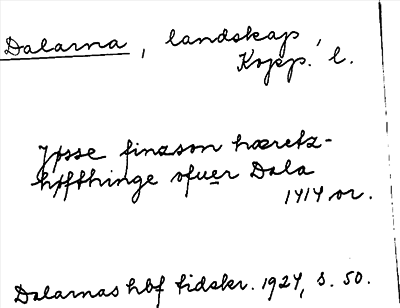 Dalarna, landskap,
Kopp. l.
Jøsse finæson hæretz-
høffthinge ofuer Dala
1414 or.
Dalarnas hbf tidskr. 1924, s. 50.